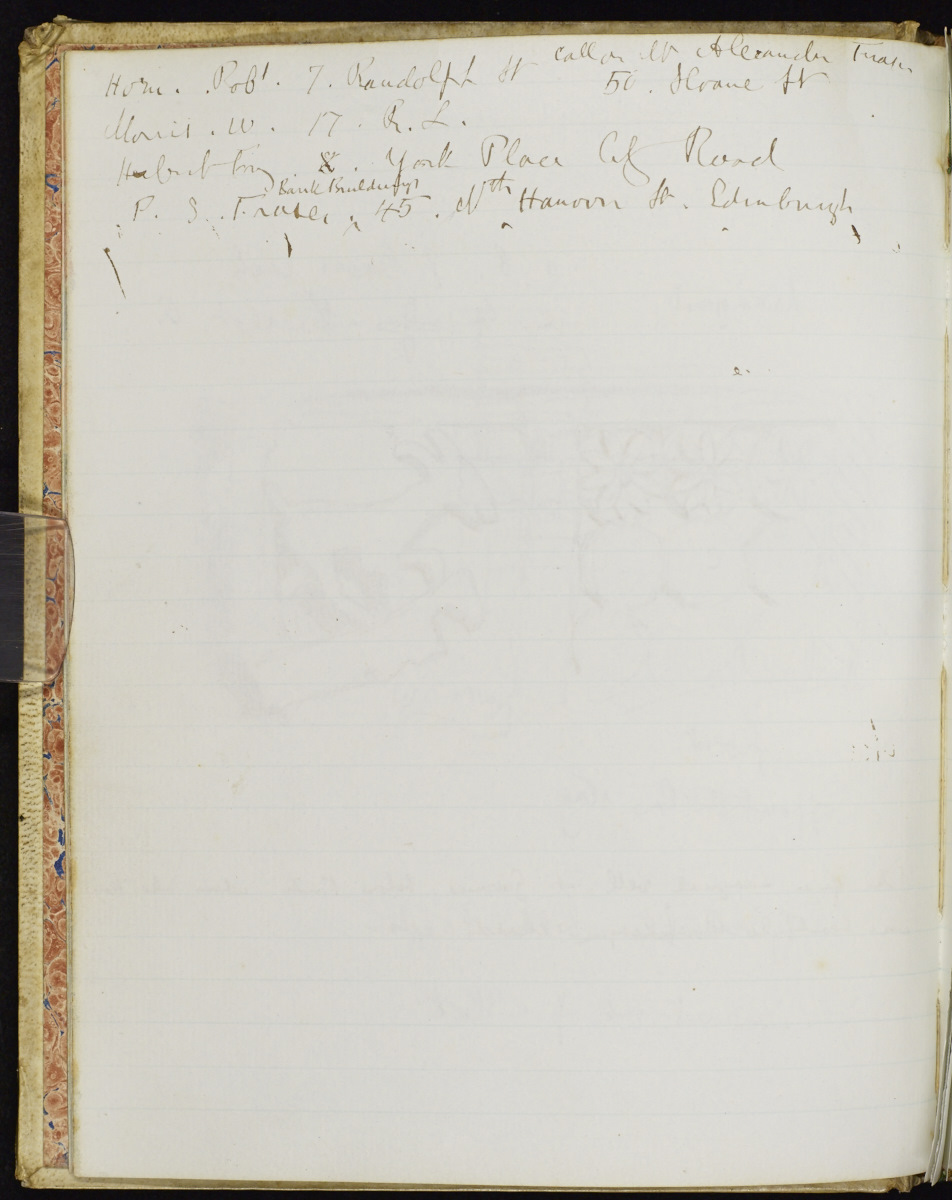 Horn. Robt. 7. Randolph St call on Mr Alexander Fraser
50. Sloane St
Morris. W. 17. R. L.
8. York Place City Road
Bank Buildings
P. S. Fraser. 45. Nth Hanover St. Edinburgh